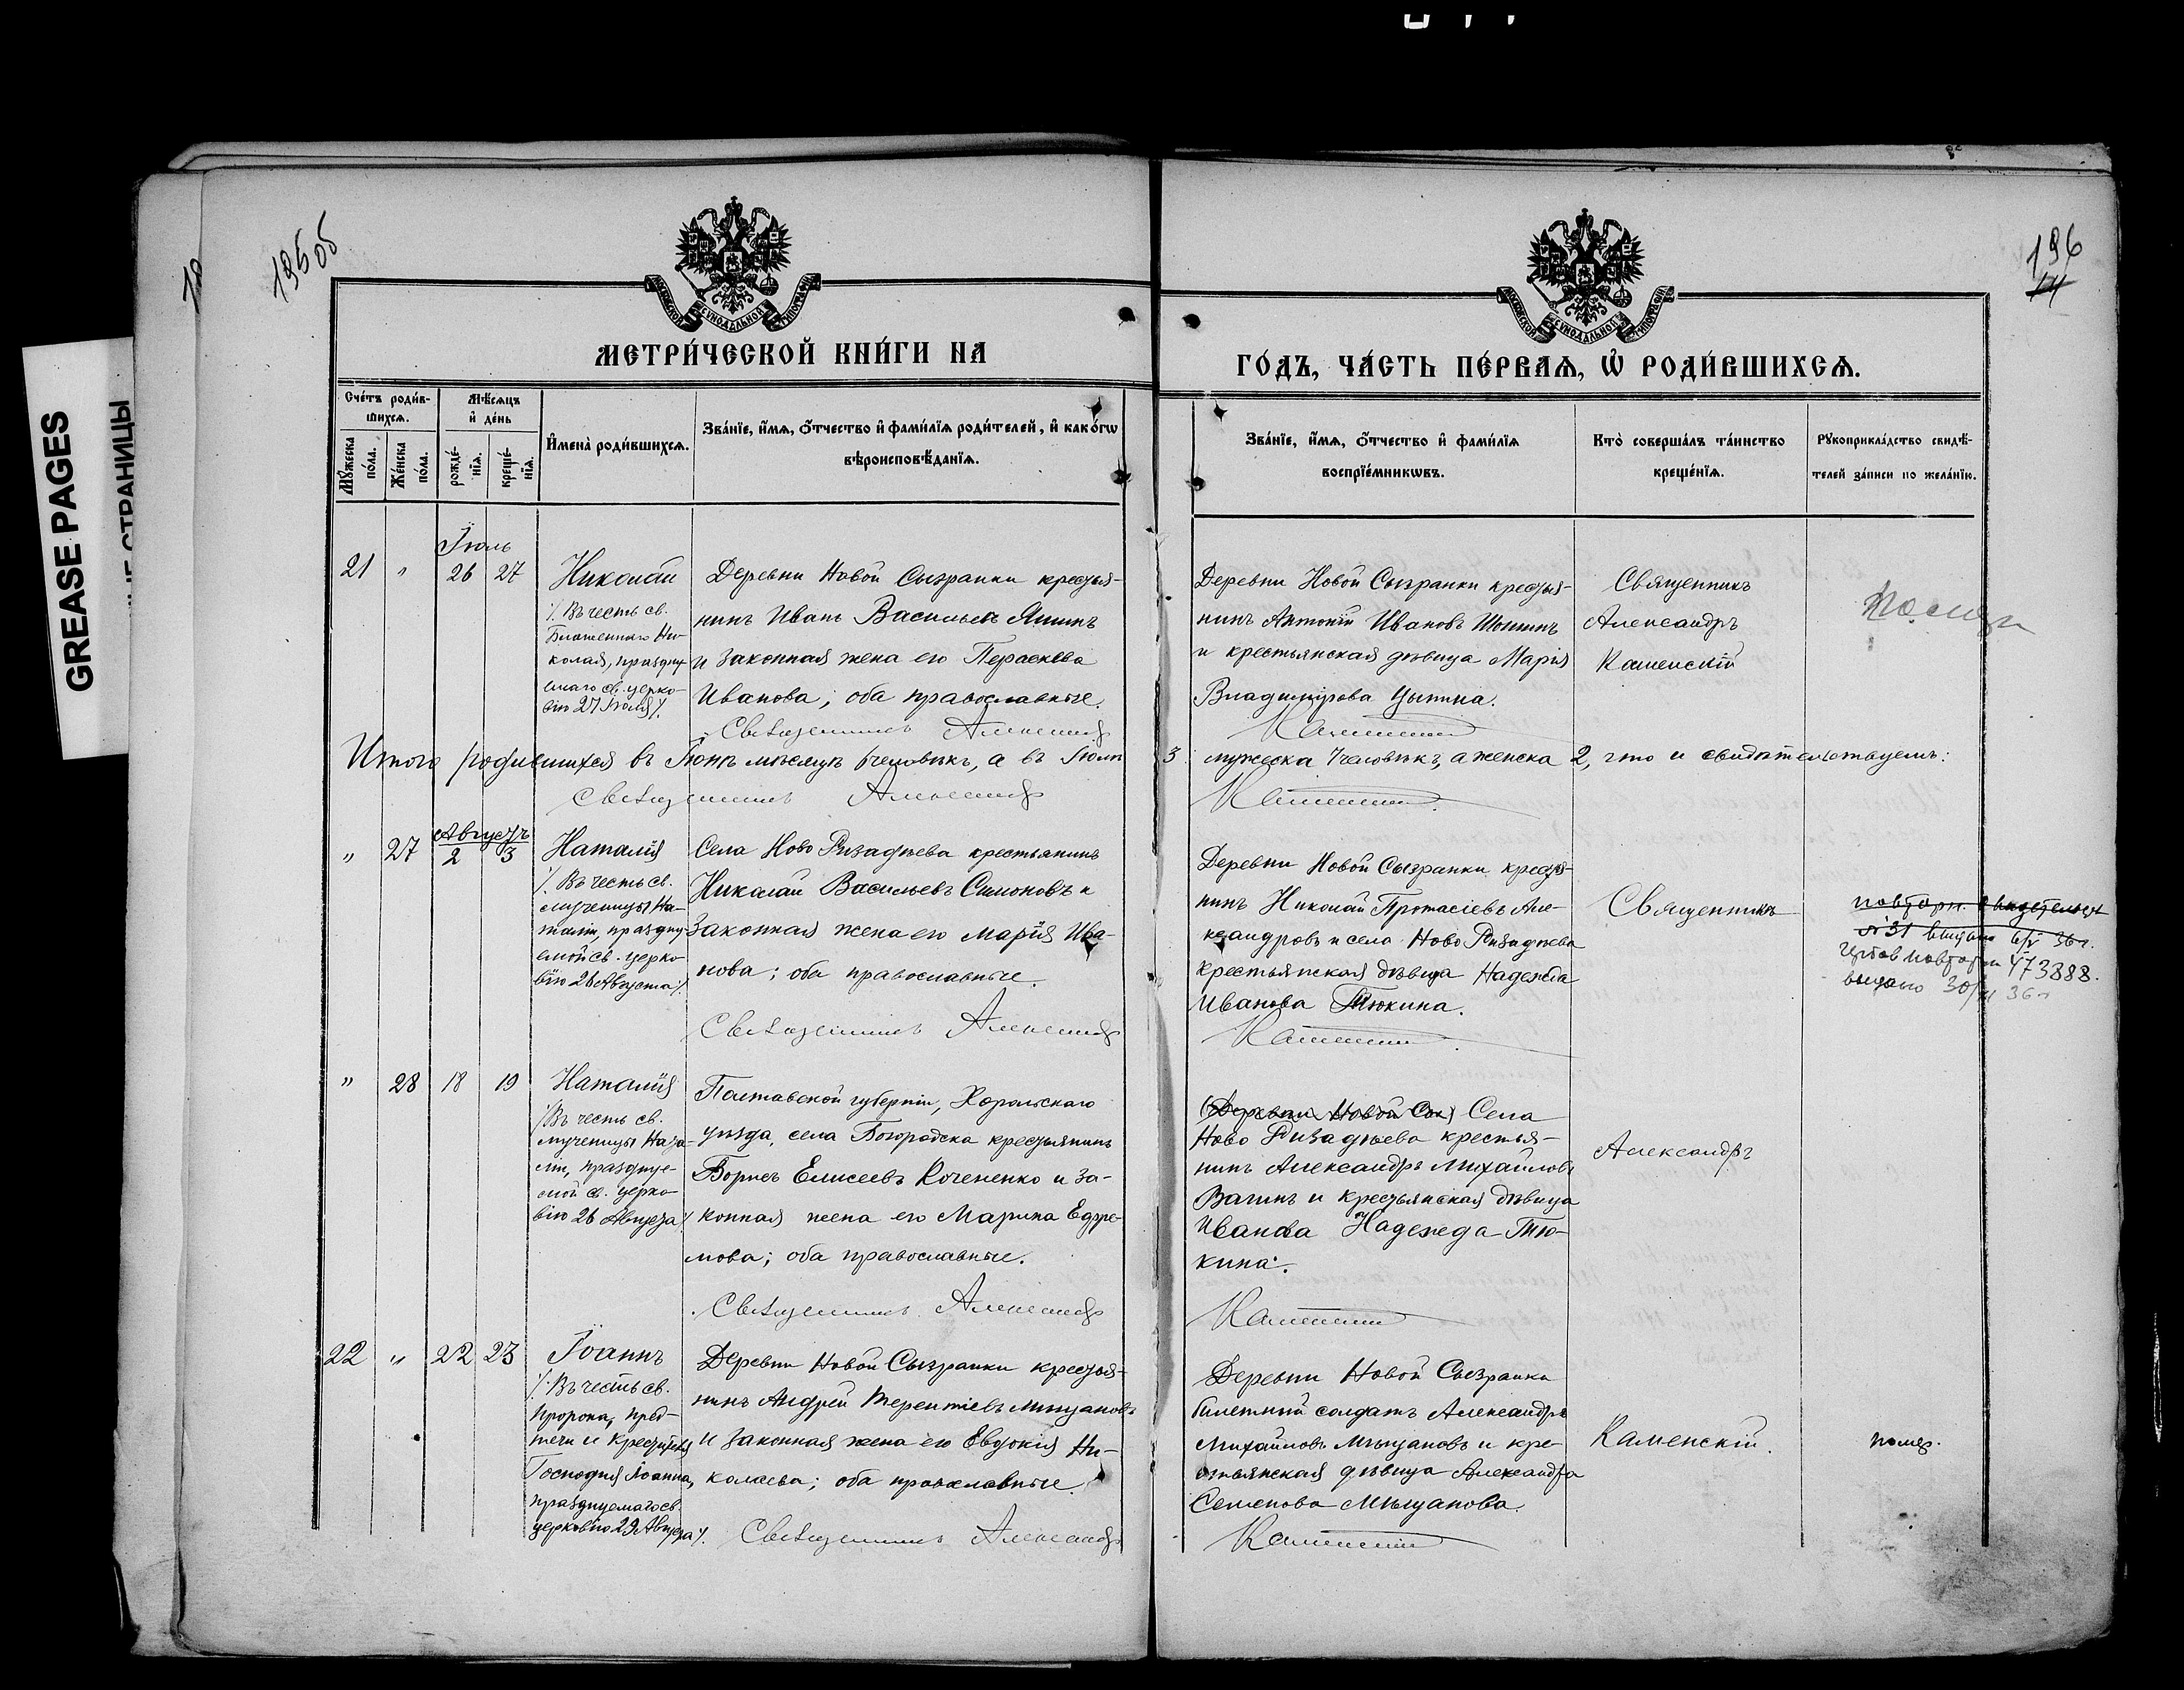 GREASE PAGES
СТРАНИЦЫ
195об
196
МОСКОВСКОЙ СѴНОДАЛЬНОЙ ТИПОГРАФІИ
МЕТРИ́ЧЕСКОЙ КНИ́ГИ НА
МОСКОВСКОЙ СѴНОДАЛЬНОЙ ТИПОГРАФІИ
ГО́ДЪ, ЧА́СТЬ ПЕ́РВАѦ, Ѡ҆ РОДИ́ВШИХСѦ.
Сче́тъ роди́в-
шихсѧ.
Мꙋ́жеска по́ла.
Же́нска по́ла.
Мѣ́сѧцъ и҆ де́нь
рожде́-нїѧ.
креще́-нїѧ.
И҆мена̀ роди́вшихсѧ.
Зва́нїе, и҆́мѧ, о҆́тчество и҆ фами́лїѧ роди́телей, и҆ како́гѡ
вѣроисповѣ́данїѧ.
Зва́нїе, и҆́мѧ, о҆́тчество и҆ фами́лїѧ
воспрїе́мникѡвъ.
Кто̀ соверша́лъ та́инство
креще́нїѧ.
Рꙋкоприкла́дство свидѣ́-
телей за́писи по жела́нїю.
Іюль
21 " 26 27
Николай
/. Въ честь св.
Блаженнаго Ни-
колая, праздну-
емаго св. церко-
вію 27 Іюля /.
Деревни Новой Сызранки крестья-
нинъ Иванъ Васильевъ Яшинъ
и законная жена его Параскева
Иванова; оба православные.
Священникъ Александръ
Деревни Новой Сызранки крестья-
нинъ Антоній Ивановъ Шошинъ
и крестьянская дѣвица Марія
Владимірова Цыпина.
Каменскій
Священникъ
Александръ
Каменскій
Итого родившихся въ Іюнѣ мѣсяцѣ человѣкъ, а въ Іюлѣ
3 мужеска человѣкъ, а женска 2, что и свидѣтельствуемъ:
Священникъ Александръ
Каменскій
Августъ
" 27 2 3
Наталія
/. Въ честь св.
мученицы На-
таліи, праздну-
емой св. церко-
вію 26 Августа /.
Села Ново Ризадѣева крестьянинъ
Николай Васильевъ Симоновъ и
законная жена его Марія Ива-
нова; оба православные.
Священникъ Александръ
Деревни Новой Сызранки крестья-
нинъ Николай Протасіевъ Але-
ксандровъ и села Ново Ризадѣева
крестьянская дѣвица Надежда
Иванова Тюкина.
Каменскій
Священникъ
473888.
выдано 30/XI 36 г
" 28 18 19
Наталія
/. Въ честь св.
мученицы Ната-
ліи, праздзуе-
мой св. церко-
вію 26 Августа /.
Полтавской губерніи, Хорольскаго
уѣзда, села Богородска крестьянинъ
Борисъ Елисеевъ Коченко и за-
конная жена его Марина Ефре-
мова; оба православные.
Священникъ Александръ
(Деревни Новой Сы) Села
Ново Ризадѣева крестья-
нинъ Александръ Михайловъ
Вагинъ и крестьянская дѣвица
Иванова Надежда Тю-
кина.
Каменскій
Александръ
22 " 22 23
Іоаннъ
/. Въ честь св.
Пророка, Пред-
течи и Крестителя
Господня Іоанна,
празднуемаго св.
церковію 29 Августа /.
Деревни Новой Сызранки крестья-
нинъ Андрей Терентіевъ Мѣщановъ
и законная жена его Евдокія Ни-
колаева; оба православные.
Священникъ Александръ
Деревни Новой Сызранки
билетный солдатъ Александръ
Михайловъ Мѣщановъ и кре-
стьянская дѣвица Александра
Семенова Мѣщанова.
Каменскій
Каменскій.
помер.